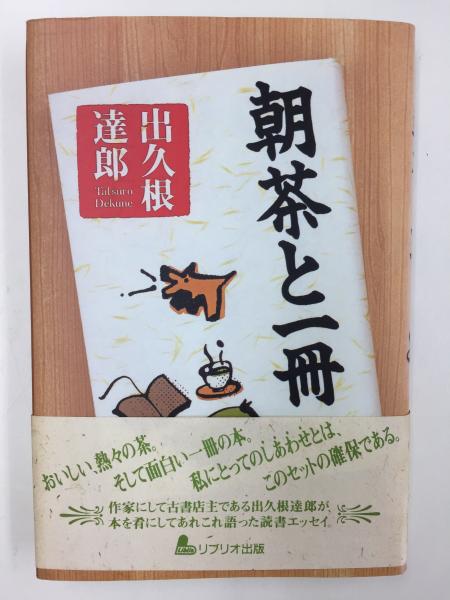 朝茶と一冊
出久根
達郎
Tatsuro
Dekune
おいしい、熱々の茶。
そして面白い一冊の本。
私にとってのしあわせとは、
このセットの確保である。
作家にして古書店主である出久根達郎が、
本を肴にしてあれこれ語った読書エッセイ
Liblio
リブリオ出版